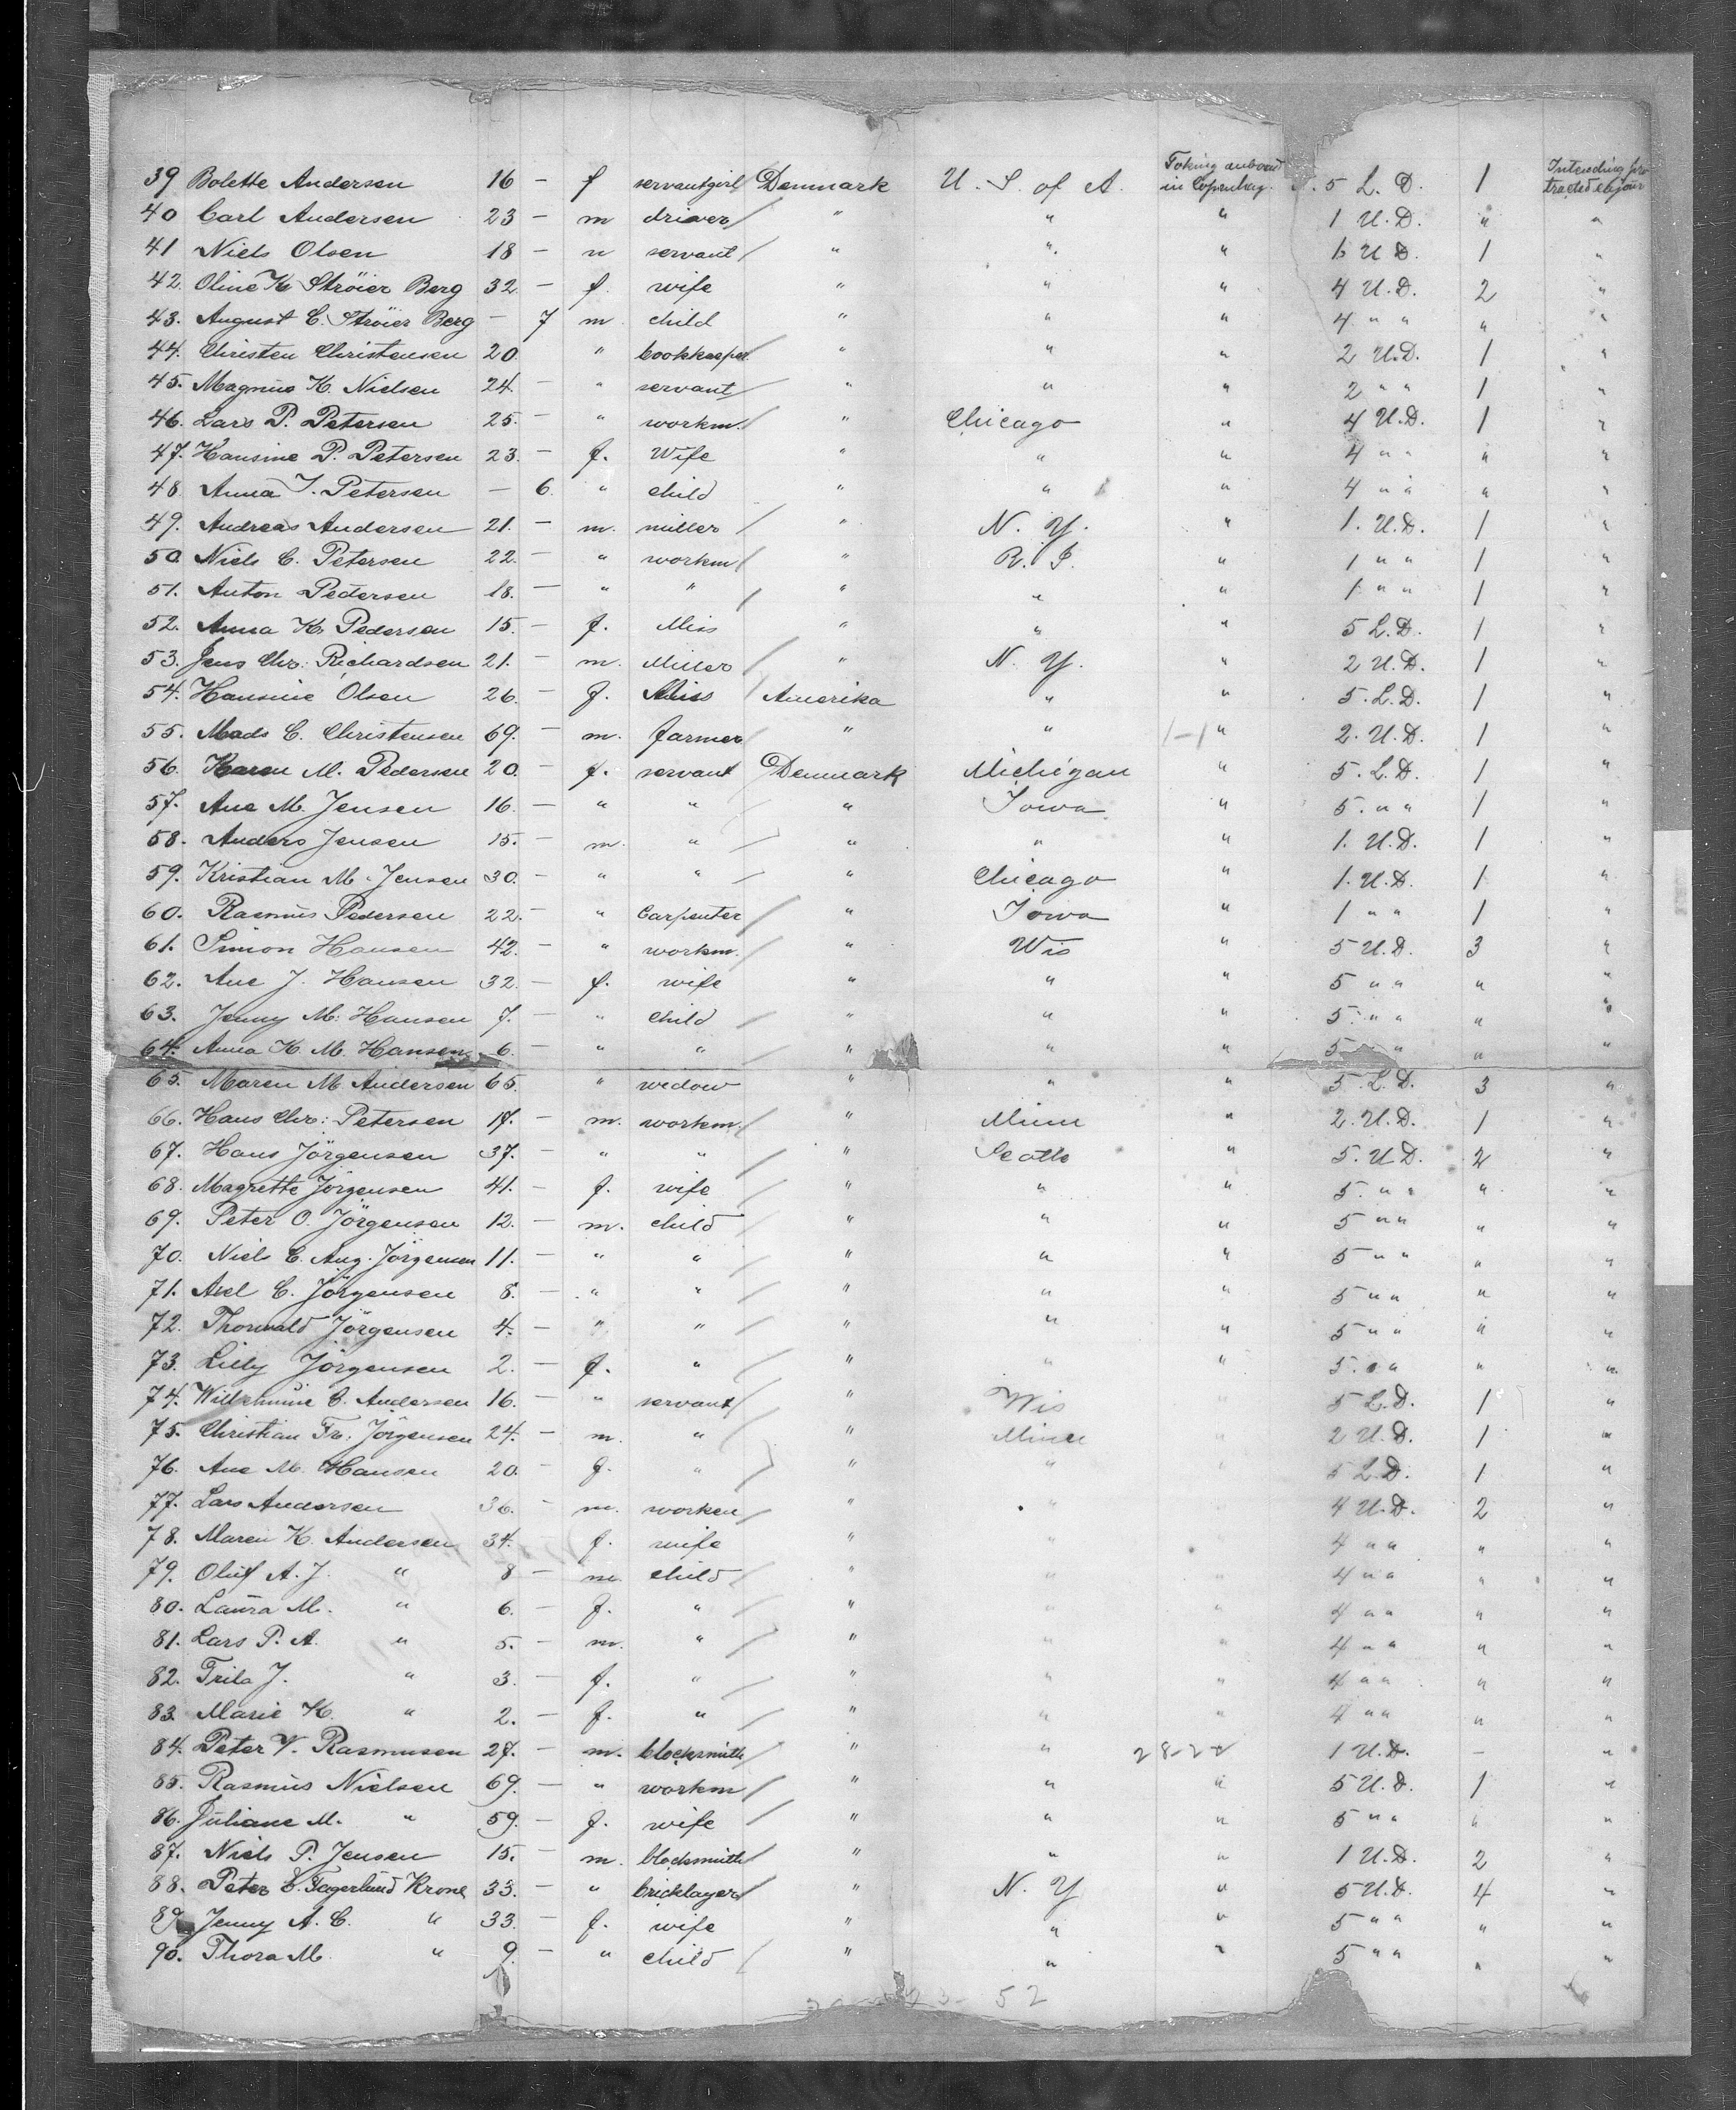 39 Bolette Andersen 16 - f servantgirl Denmark U. S. of A. Taking onboard in Copenhag. 5 L. D. 1 Intending protracted sejour
40 Carl Andersen 23 - m driver " " " 1 U. D. " "
41 Niels Olsen 18 - m servant " " " 1 U. D. 1 "
42. Oline K Ströier Berg 32. - f. wife " " " 4 U. D. 2 "
43. August C. Ströier Berg - 7 m child " " " 4 " " " "
44. Christen Christensen 20. " bookkeeper " " " 2 U.D. 1 "
45. Magnus K. Nielsen 24. - " servant " " " 2 " " 1 "
46. Lars P. Petersen 25. - " workm. " Chicago " 4 U.D. 1 "
47. Hansine P. Petersen 23. - f. Wife " " " 4 " " " "
48. Anna J. Petersen - 6. " child " " " 4 " " " "
49. Andreas Andersen 21. - m. miller " N. Y. " 1. U.D. 1 "
50. Niels C. Petersen 22. - " workm " R. I. " 1 " " 1 "
51. Anton Pedersen 18. - " " " " " 1 " " 1 "
52. Anna K. Pedersen 15. - f. Miss " " " 5 L.D. 1 "
53. Jens Chr: Richardsen 21. - m. Miller " N. Y. " 2 U.D. 1 "
54. Hansine Olsen 26. - f. Miss Amerika " " 5. L.D. 1 "
55. Mads C. Christensen 69. - m. farmer " " 1-1 " 2. U.D. 1 "
56. Karen M. Pedersen 20. - f. servant Denmark Michigan " 5. L.D. 1 "
57. Ane M. Jensen 16. - " " " Iowa " 5. " " 1 "
58. Anders Jensen 15. - m. " " " " 1. U.D. 1 "
59. Kristian M. Jensen 30. - " " " Chicago " 1. U.D. 1 "
60. Rasmus Pedersen 22. - " Carpenter " Iowa " 1 " " 1 "
61. Simon Hansen 42. - " workm. " Wis " 5 U.D. 3 "
62. Ane J. Hansen 32. - f. wife " " " 5 " " " "
63. Jenny M. Hansen 7. - " child " " " 5. " " " "
64. Anna K. M. Hansen 6. - " " " " " 5 " " "
65. Maren M Andersen 65. " widow " " " 5. L.D. 3 "
66. Hans Chr: Petersen 17. - m. workm. " Minn " 2. U.D. 1 "
67. Hans Jörgensen 37. - " " " Seatle " 5. U D. 2 "
68. Magrette Jörgensen 41. - f. wife " " " 5. " " " "
69. Peter O. Jörgensen 12. - m. child " " " 5 " " " "
70. Niels C. Aug. Jörgensen 11. - " " " " " 5 " " " "
71. Axel C. Jörgensen 8. - " " " " " 5 " " " "
72. Thorvald Jörgensen 4. - " " " " " 5 " " " "
73. Lilly Jörgensen 2. - f. " " " " 5. " " " "
74. Wilhelmine C. Andersen 16. - " servant " Wis " 5 L.D. 1 "
75. Christian Fr: Jörgensen 24. - m. " " Minn " 2 U.D. 1 "
76. Ane M. Hansen 20. - f. " " " " 5 L.D. 1 "
77. Lars Andersen 36. - m. workm " " 4 U.D. 2 "
78. Maren K. Andersen 34. - f. wife " " 4 " " " "
79. Oluf A. J. " 8 - m. child " " " 4 " " " "
80. Laura M. " 6. - f. " " " " 4 " " " "
81. Lars P. A. " 5. - m. " " " " 4 " " " "
82. J. " 3. - f. " " " " 4 " " " "
83. Marie K. " 2. - f. " " " " 4 " " " "
84. Peter V. Rasmusen 27. - m. blocksmith " " 28-2 1 U.D. - "
85. Rasmus Nielsen 69. - " workm " " " 5 U.D. 1 "
86. Juliane M. " 59. - f. wife " " " 5 " " " "
87. Niels P. Jensen 15. - m. blocksmith " " " 1 U.D. 2 "
88. Peter C. Fagerlund Krone 33. - " bricklayer " N. Y " 5 U.D. 4 "
89. Jenny A. C. " 33. - f. wife " " " 5 " " " "
90. Thora M. " 9. - " child " " " 5 " " " "
52